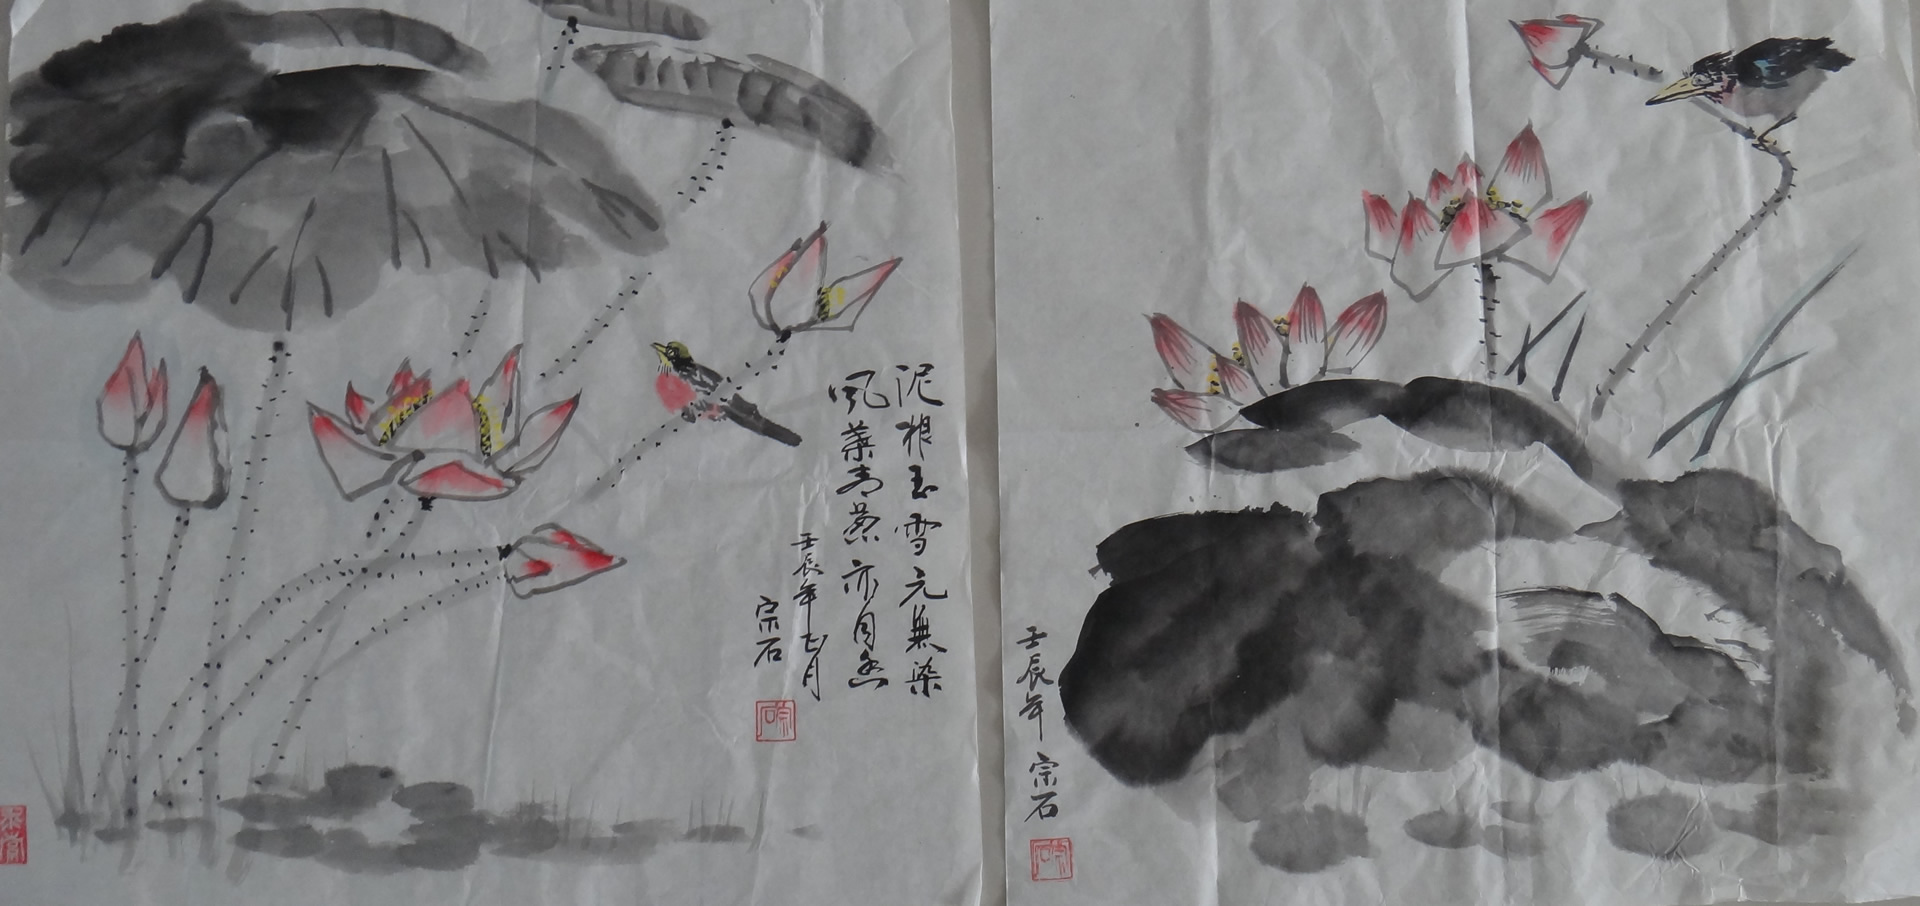 泥根玉雪元無染
風葉青葱亦自香
壬辰年七月
宗石
壬辰年 宗石